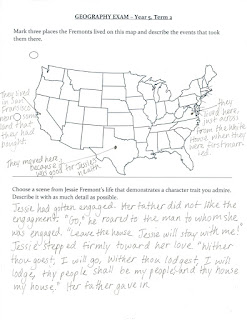 GEOGRAPHY EXAM – Year 5, Term 2
Mark three places the Fremonts lived on this map and describe the events that took
them there.
They lived
in San
Francisco
near some
land that
they had
bought.
They moved here
because it
was good for Jessie's
health.
They
lived here,
two doors
from the white
house, when they
were first marr-
ied.
Choose a scene from Jessie Fremont's life that demonstrates a character trait you admire.
Describe it with as much detail as possible.
Jessie had gotten engaged. Her father did not like the
engagement. "Go," he roared to the man to whom she
was engaged. "Leave the house. Jessie will stay with me!"
Jessie stepped firmly toward her love. "Wither
thou goest, I will go, Wither thou lodgest, I will
lodge, thy people shall be my people and thy house
my house." Her father gave in